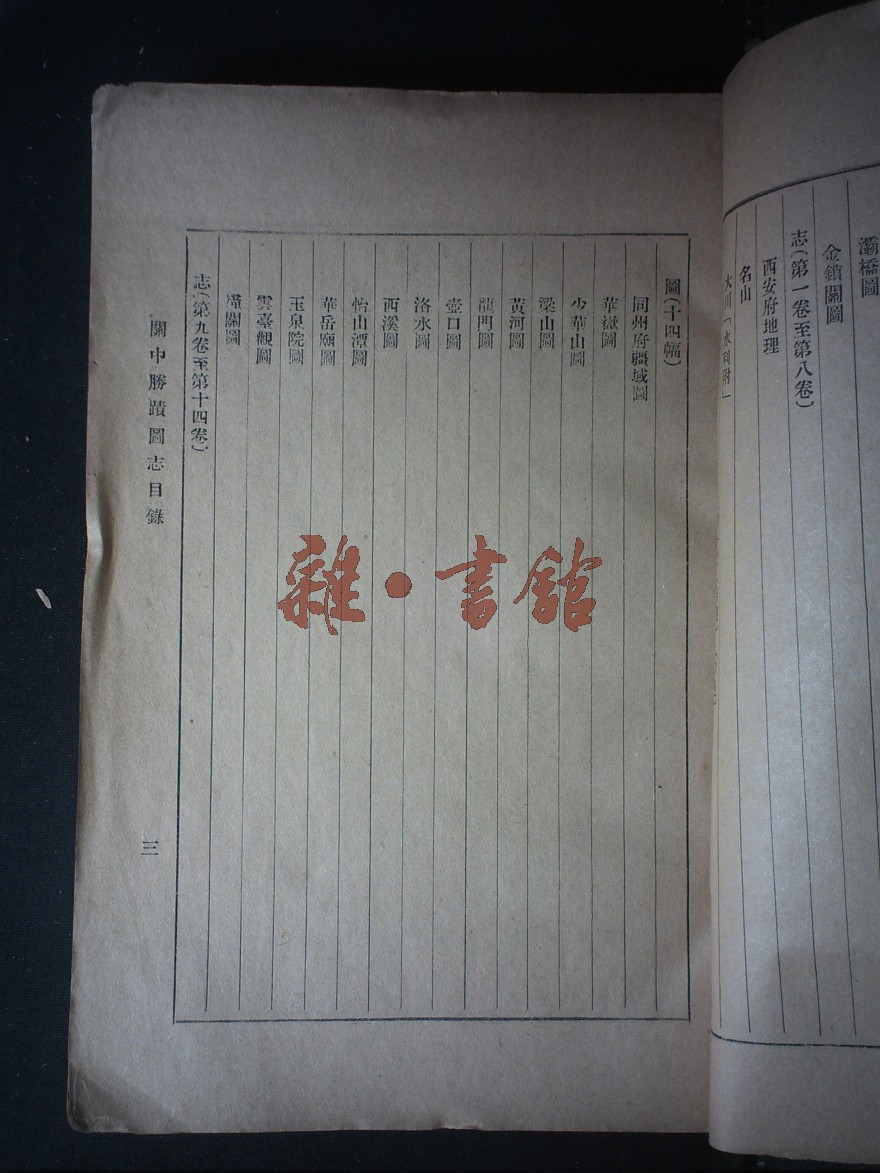 灞橋圖
金鎖關圖
志(第一卷至第八卷)
西安府地理
名山
大川「水利附」
圖(十四幅)
同州府疆域圖
華嶽圖
少華山圖
梁山圖
黃河圖
龍門圖
壺口圖
洛水圖
西溪圖
怡山潭圖
華岳廟圖
玉泉院圖
雲臺觀圖
潼關圖
志(第九卷至第十四卷)
關中勝蹟圖志目錄
三
雜·書館